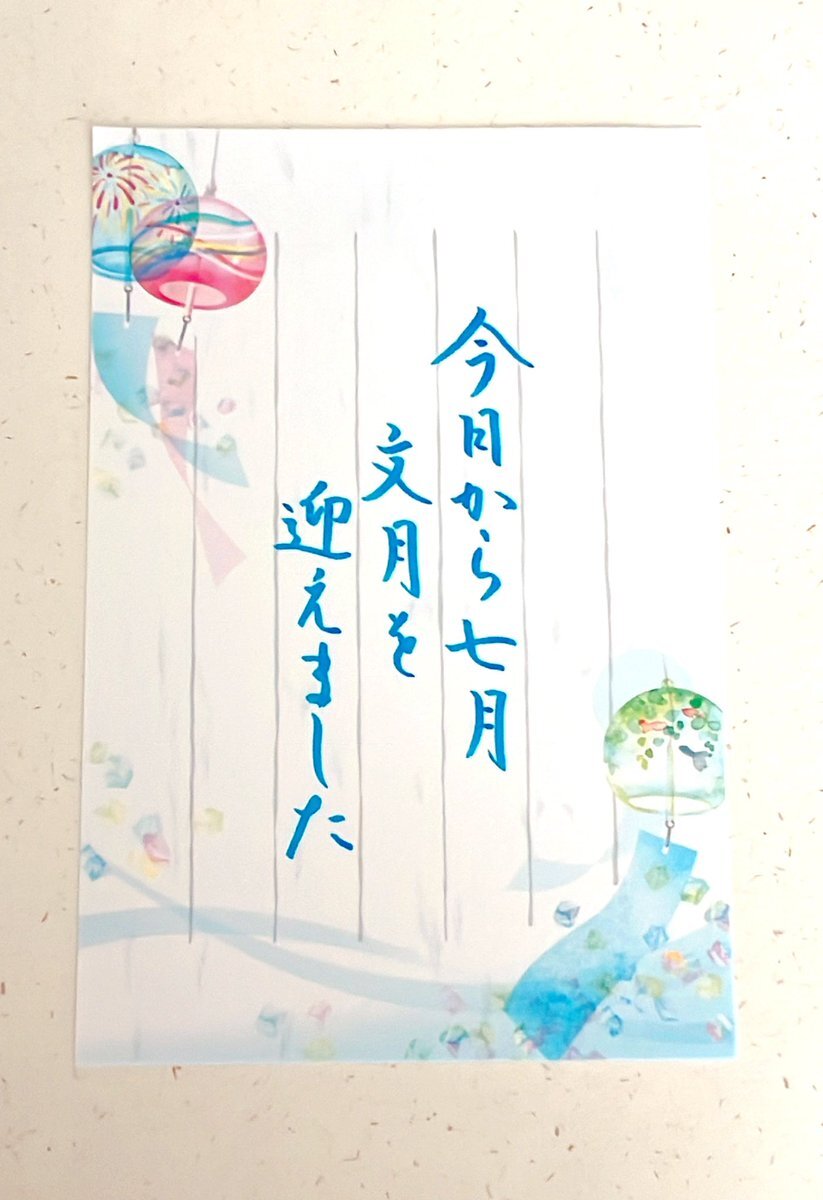 今日から七月
文月を
迎えました